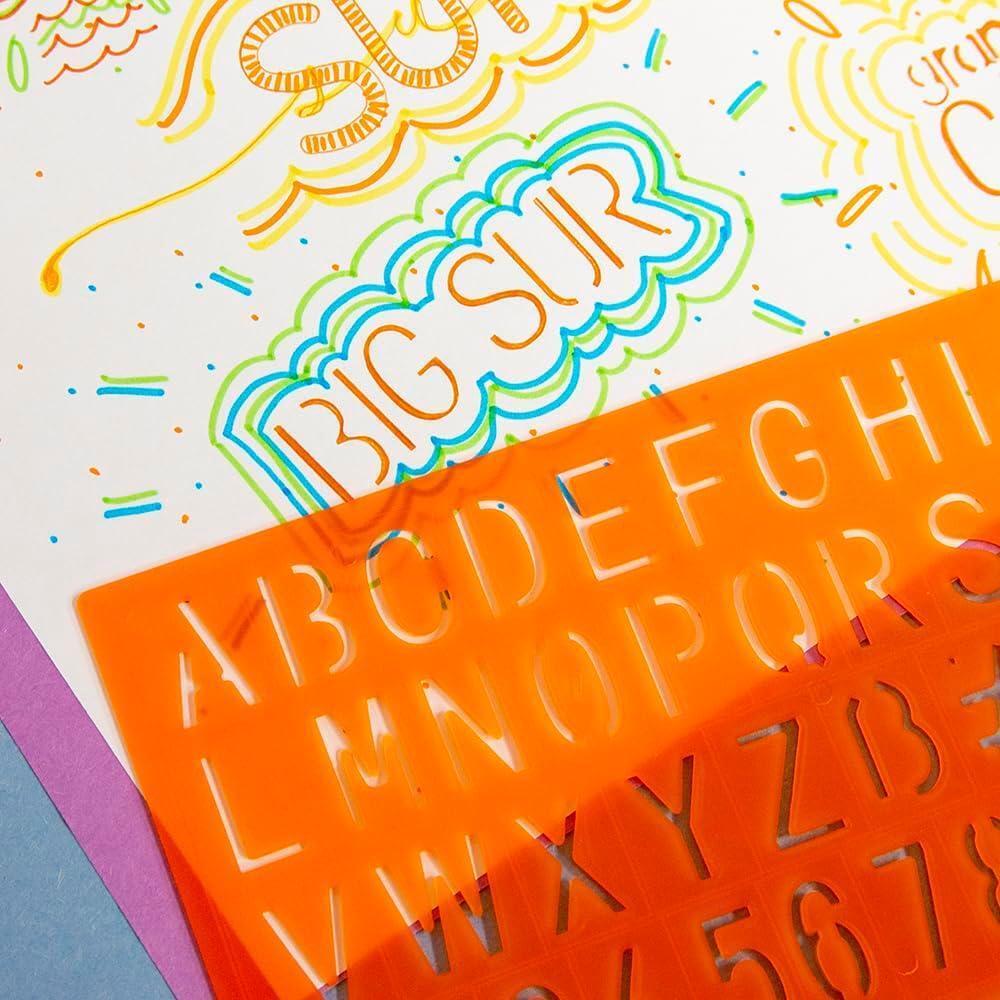 SUR
gran
C
BIG SUR
ABCDEFGHI
LMNOPQRS
VWXYZß£
5678